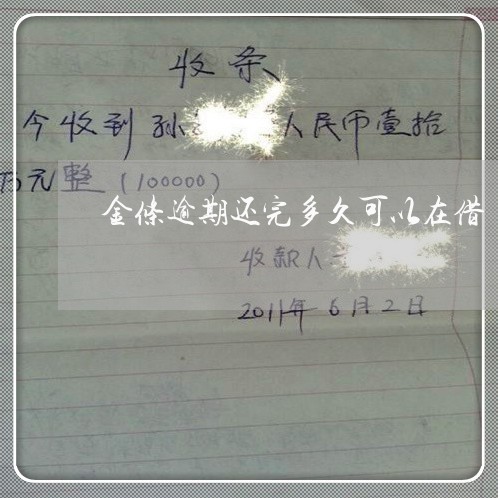 收条
今收到孙 人民币壹拾
万元整(100000)
金条逾期还完多久可以在借
收款人
2011年6月2日